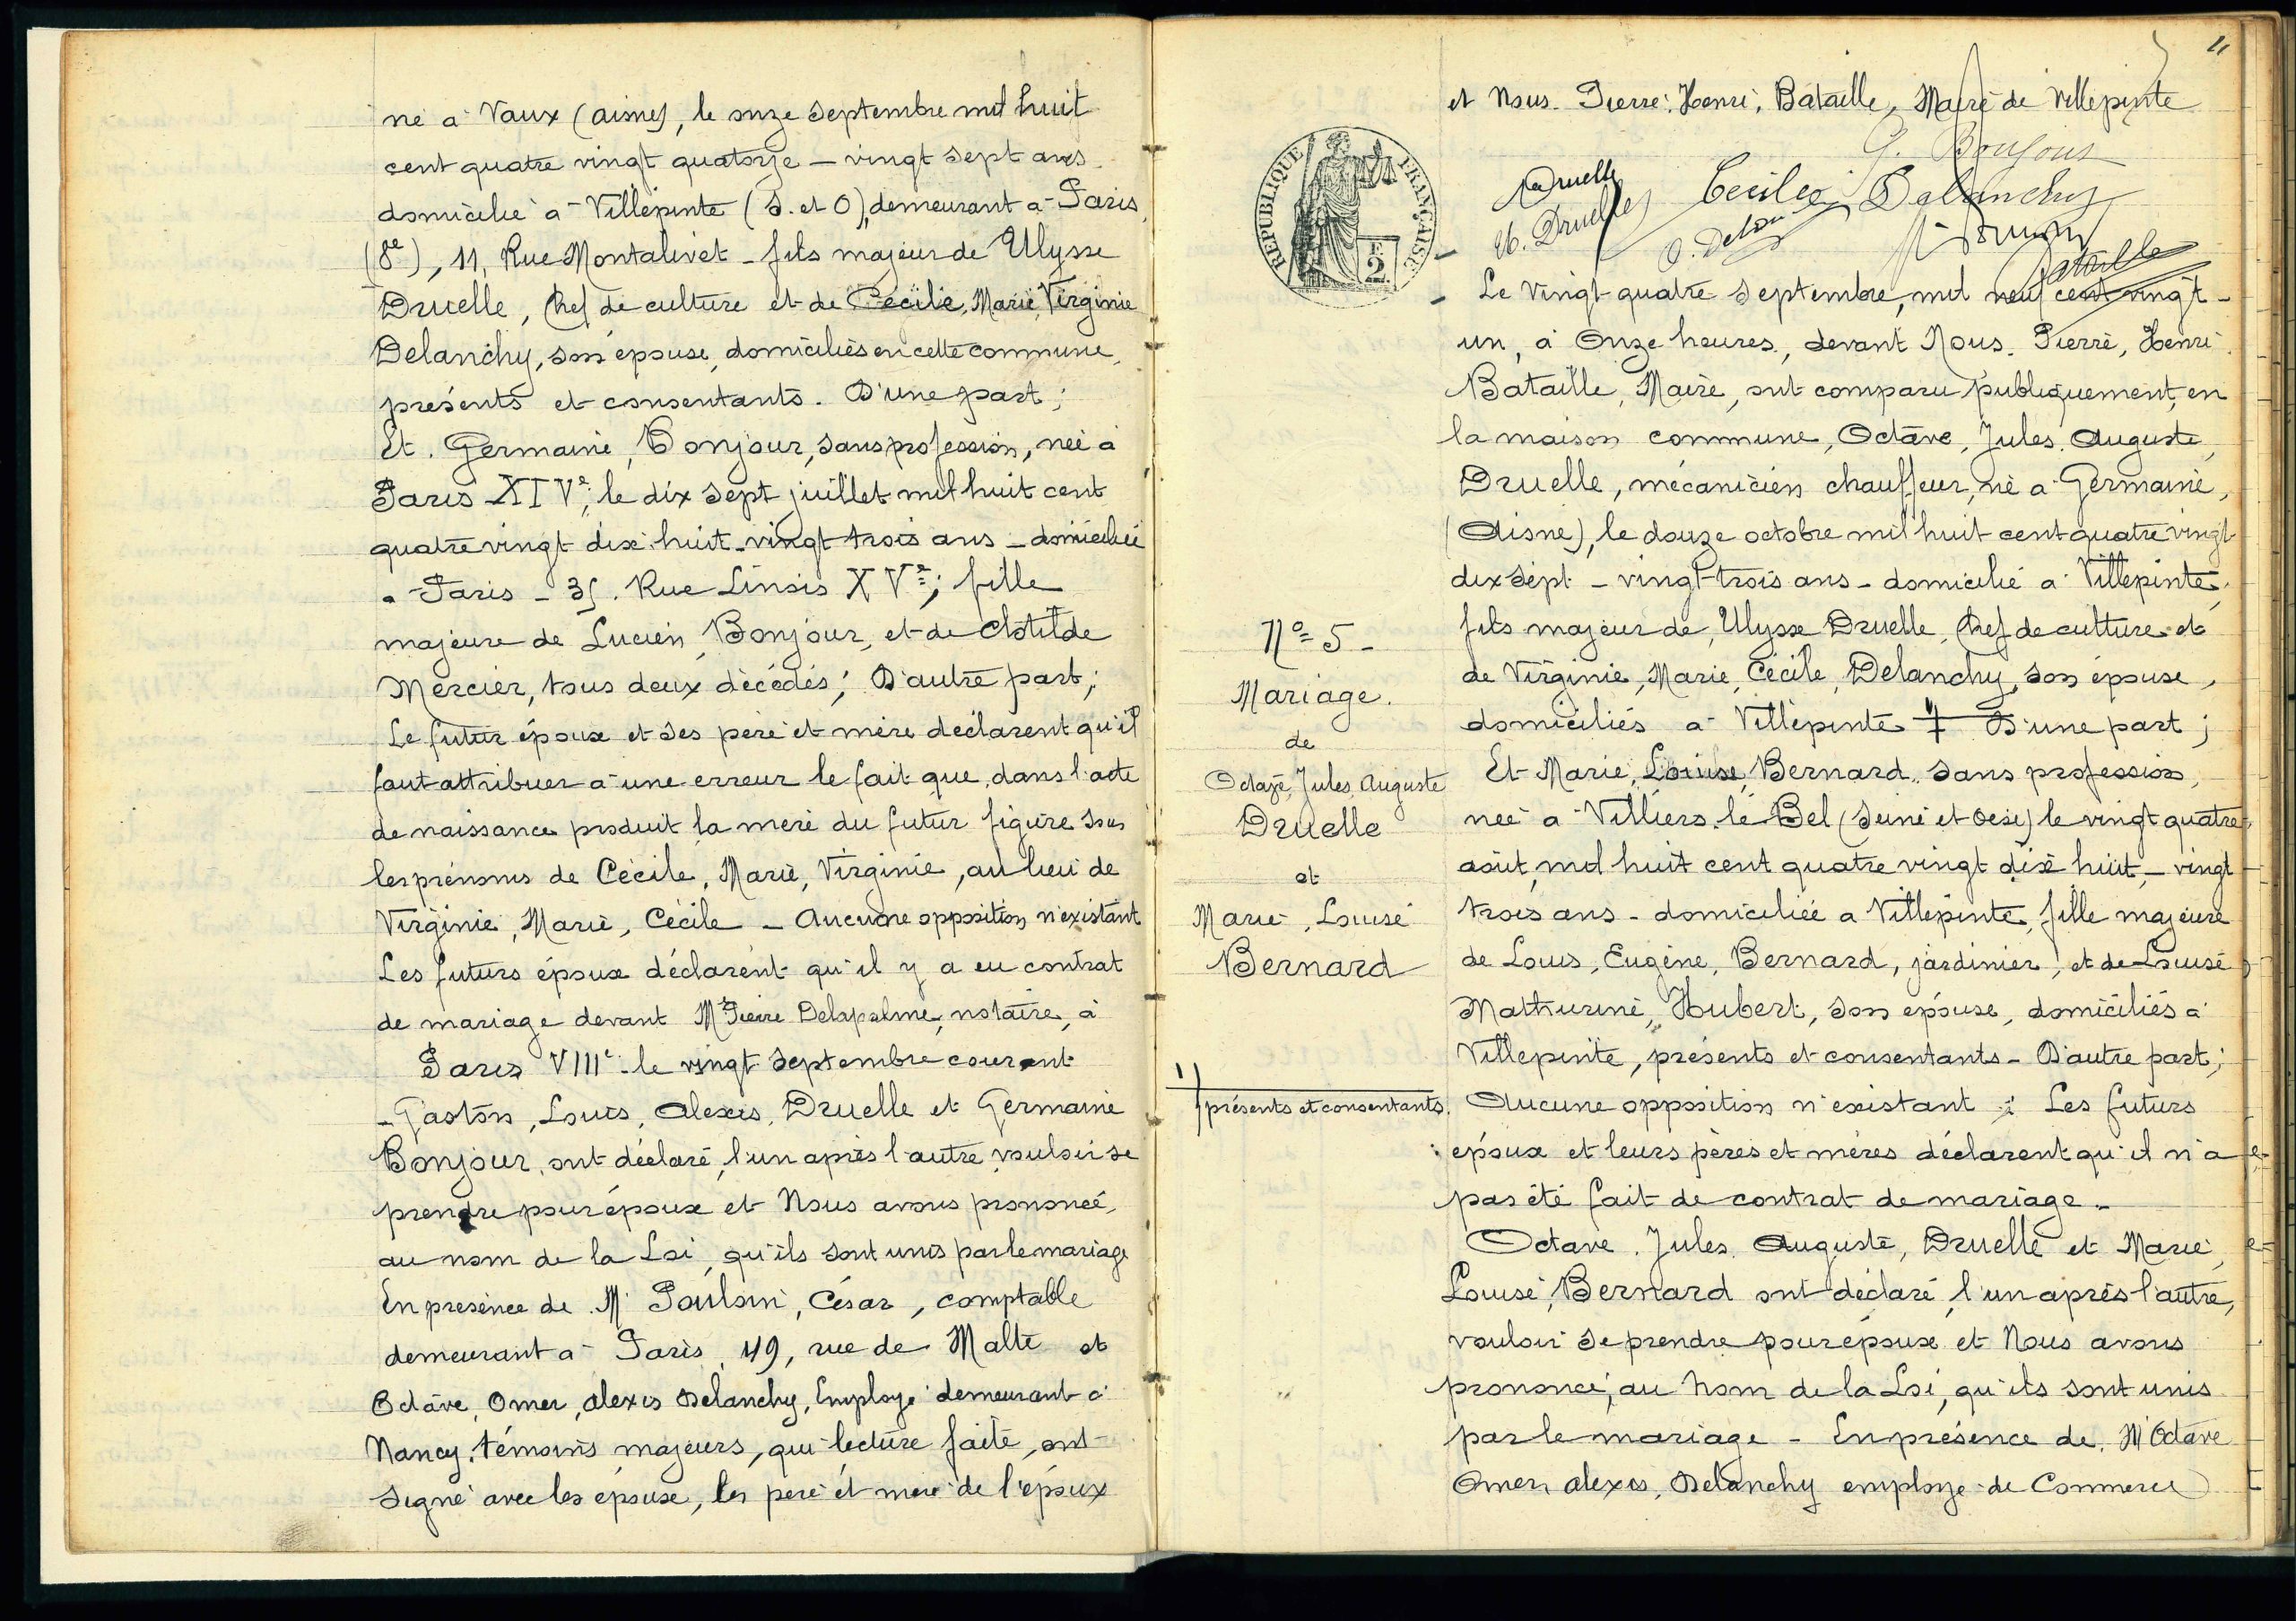 né à Vaux (aisne), le onze septembre mil huit
cent quatre vingt quatorze - vingt sept ans
domicilié à Villepinte (S. et O), demeurant à Paris
(8e), 11, Rue Montalivet - fils majeur de Ulysse
Druelle, Chef de culture et de Cécile, Marie, Virginie
Delanchy, son épouse, domiciliés en cette commune,
présents et consentants. D'une part;
Et. Germaine, Bonjour, sans profession, née à
Paris XIVe, le dix sept juillet mil huit cent
quatre vingt dix huit - vingt trois ans - domiciliée
à Paris - 35. Rue Linois XVe; fille
majeure de Lucien, Bonjour, et de Clotilde
Mercier, tous deux décédés; D'autre part;
Le futur époux et ses père et mère déclarent qu'il
faut attribuer à une erreur le fait que, dans l'acte
de naissance produit la mère du futur figure sous
les prénoms de Cécile, Marie, Virginie, au lieu de
Virginie, Marie, Cécile - Aucune opposition n'existant
Les futurs époux déclarent qu'il y a eu contrat
de mariage devant Me Pierre Delapalme, notaire, à
Paris VIIIe le vingt septembre courant
- Gaston, Louis, Alexis, Druelle et Germaine
Bonjour, ont déclaré, l'un après l'autre, vouloir se
prendre pour époux et Nous avons prononcé,
au nom de la Loi, qu'ils sont unis par le mariage
En présence de M. Poulain, César, comptable
demeurant à Paris, 49, rue de Malte et
Octave, Omer, Alexis Delanchy, Employé demeurant à
Nancy, témoins majeurs, qui lecture faite, ont
signé avec les époux, les père et mère de l'époux
11
et Nous. Pierre, Henri, Bataille, Maire de Villepinte
G. Bonjour
Druelle Cécile Delanchy
Druelle O. Delan
Bataille
REPUBLIQUE FRANÇAISE
2
Le vingt quatre septembre, mil neuf cent vingt-
un, à onze heures, devant Nous. Pierre, Henri
Bataille, Maire, ont comparu publiquement, en
la maison commune, Octave, Jules, Auguste,
Druelle, mécanicien chauffeur, né à Germaine,
(Aisne), le douze octobre mil huit cent quatre vingt
dix sept - vingt-trois ans - domicilié à Villepinte,
fils majeur de, Ulysse Druelle, Chef de culture et
de Virginie, Marie, Cécile, Delanchy, son épouse,
domiciliés à Villepinte D'une part;
Et Marie, Louise, Bernard, sans profession,
née à Villiers-le-Bel (Seine et Oise) le vingt quatre
août, mil huit cent quatre vingt dix huit - vingt
trois ans - domiciliée à Villepinte, fille majeure
de Louis, Eugène, Bernard, jardinier, et de Louise
Mathurine, Hubert, son épouse, domiciliés à
Villepinte, présents et consentants - D'autre part;
Aucune opposition n'existant; Les futurs
époux et leurs pères et mères déclarent qu'il n'a
pas été fait de contrat de mariage -
Octave, Jules, Auguste, Druelle et Marie,
Louise, Bernard ont déclaré, l'un après l'autre,
vouloir se prendre pour époux et Nous avons
prononcé, au nom de la Loi, qu'ils sont unis
par le mariage - En présence de, M Octave
Omer, Alexis, Delanchy employé de Commerce
No 5 -
Mariage.
de
Octave, Jules, Auguste
Druelle
et
Marie, Louise
Bernard
1) présents et consentants.